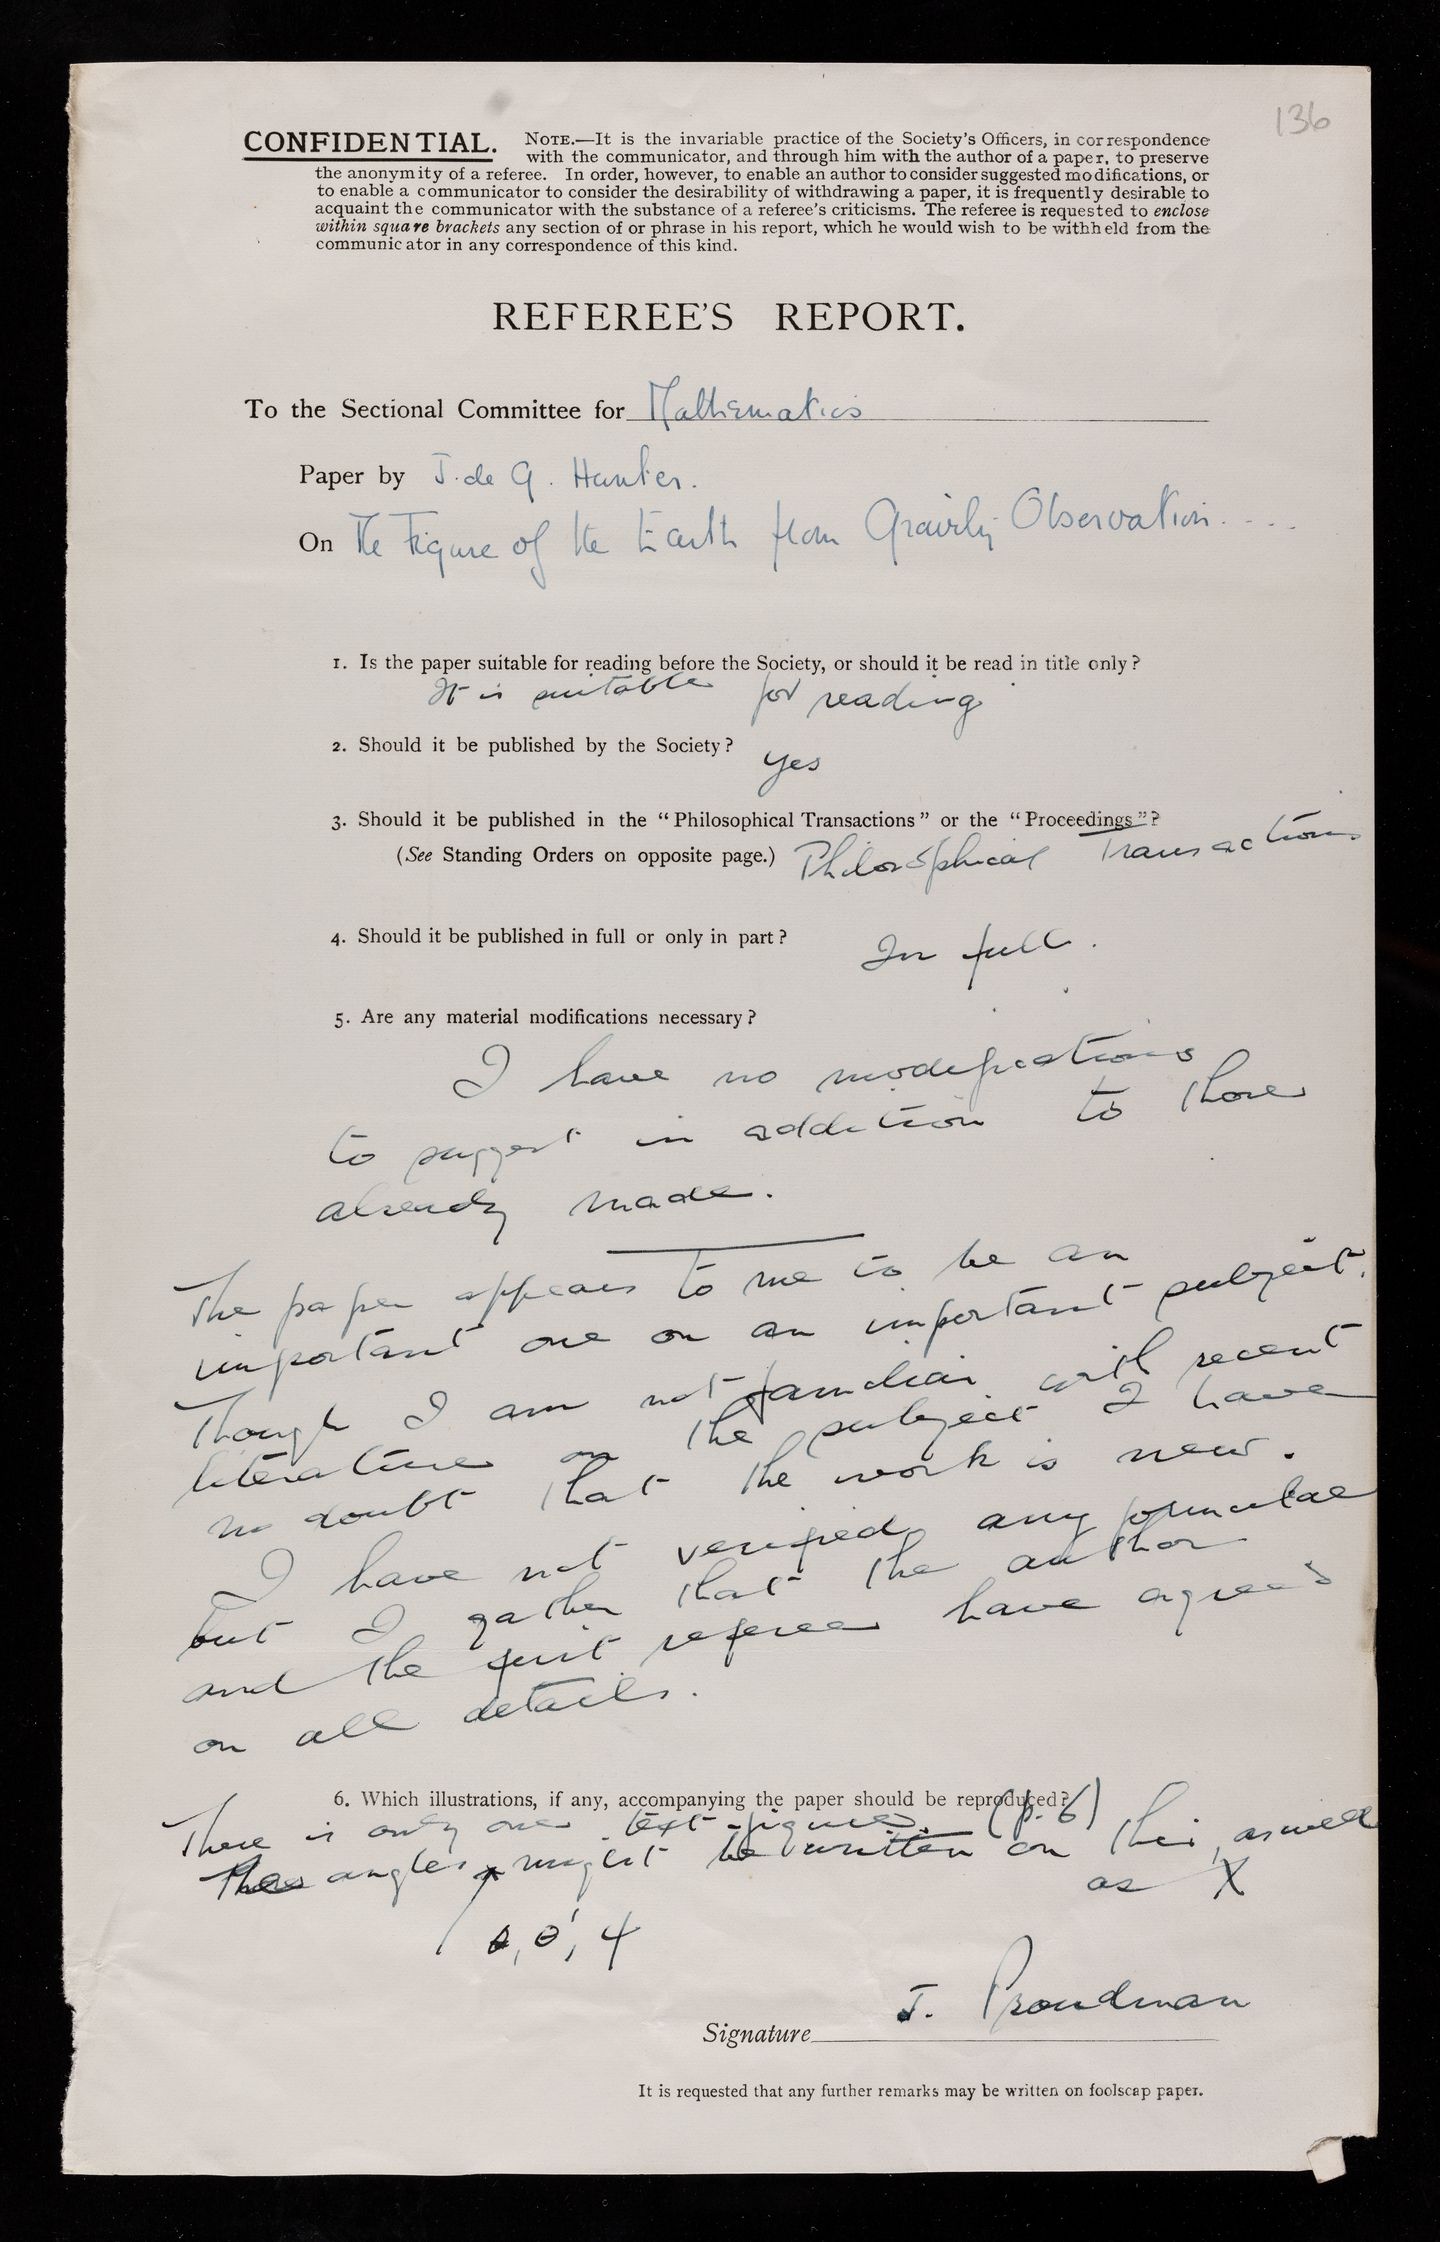 136
CONFIDENTIAL. NOTE.—It is the invariable practice of the Society's Officers, in correspondence
with the communicator, and through him with the author of a paper, to preserve
the anonymity of a referee. In order, however, to enable an author to consider suggested modifications, or
to enable a communicator to consider the desirability of withdrawing a paper, it is frequently desirable to
acquaint the communicator with the substance of a referee's criticisms. The referee is requested to enclose
within square brackets any section of or phrase in his report, which he would wish to be withheld from the
communicator in any correspondence of this kind.
REFEREE'S REPORT.
To the Sectional Committee for Mathematics
Paper by J. de G. Hunter.
On The Figure of the Earth from Gravity Observation....
1. Is the paper suitable for reading before the Society, or should it be read in title only?
It is suitable for reading
2. Should it be published by the Society?
yes
3. Should it be published in the "Philosophical Transactions" or the "Proceedings"?
(See Standing Orders on opposite page.) Philosophical Transactions
4. Should it be published in full or only in part?
In full.
5. Are any material modifications necessary?
I have no modifications
to suggest in addition to those
already made.
The paper appears to me to be an
important one on an important subject.
Though I am not familiar with recent
literature on the subject I have
no doubt that the work is new.
I have not verified any formulae
but I gather that the author
and the first referee have agreed
on all details.
6. Which illustrations, if any, accompanying the paper should be reproduced?
There is only one text-figure. (p. 6)
The angles might be written on this, as well
as X
θ, θ', ψ
J. Proudman
Signature
It is requested that any further remarks may be written on foolscap paper.